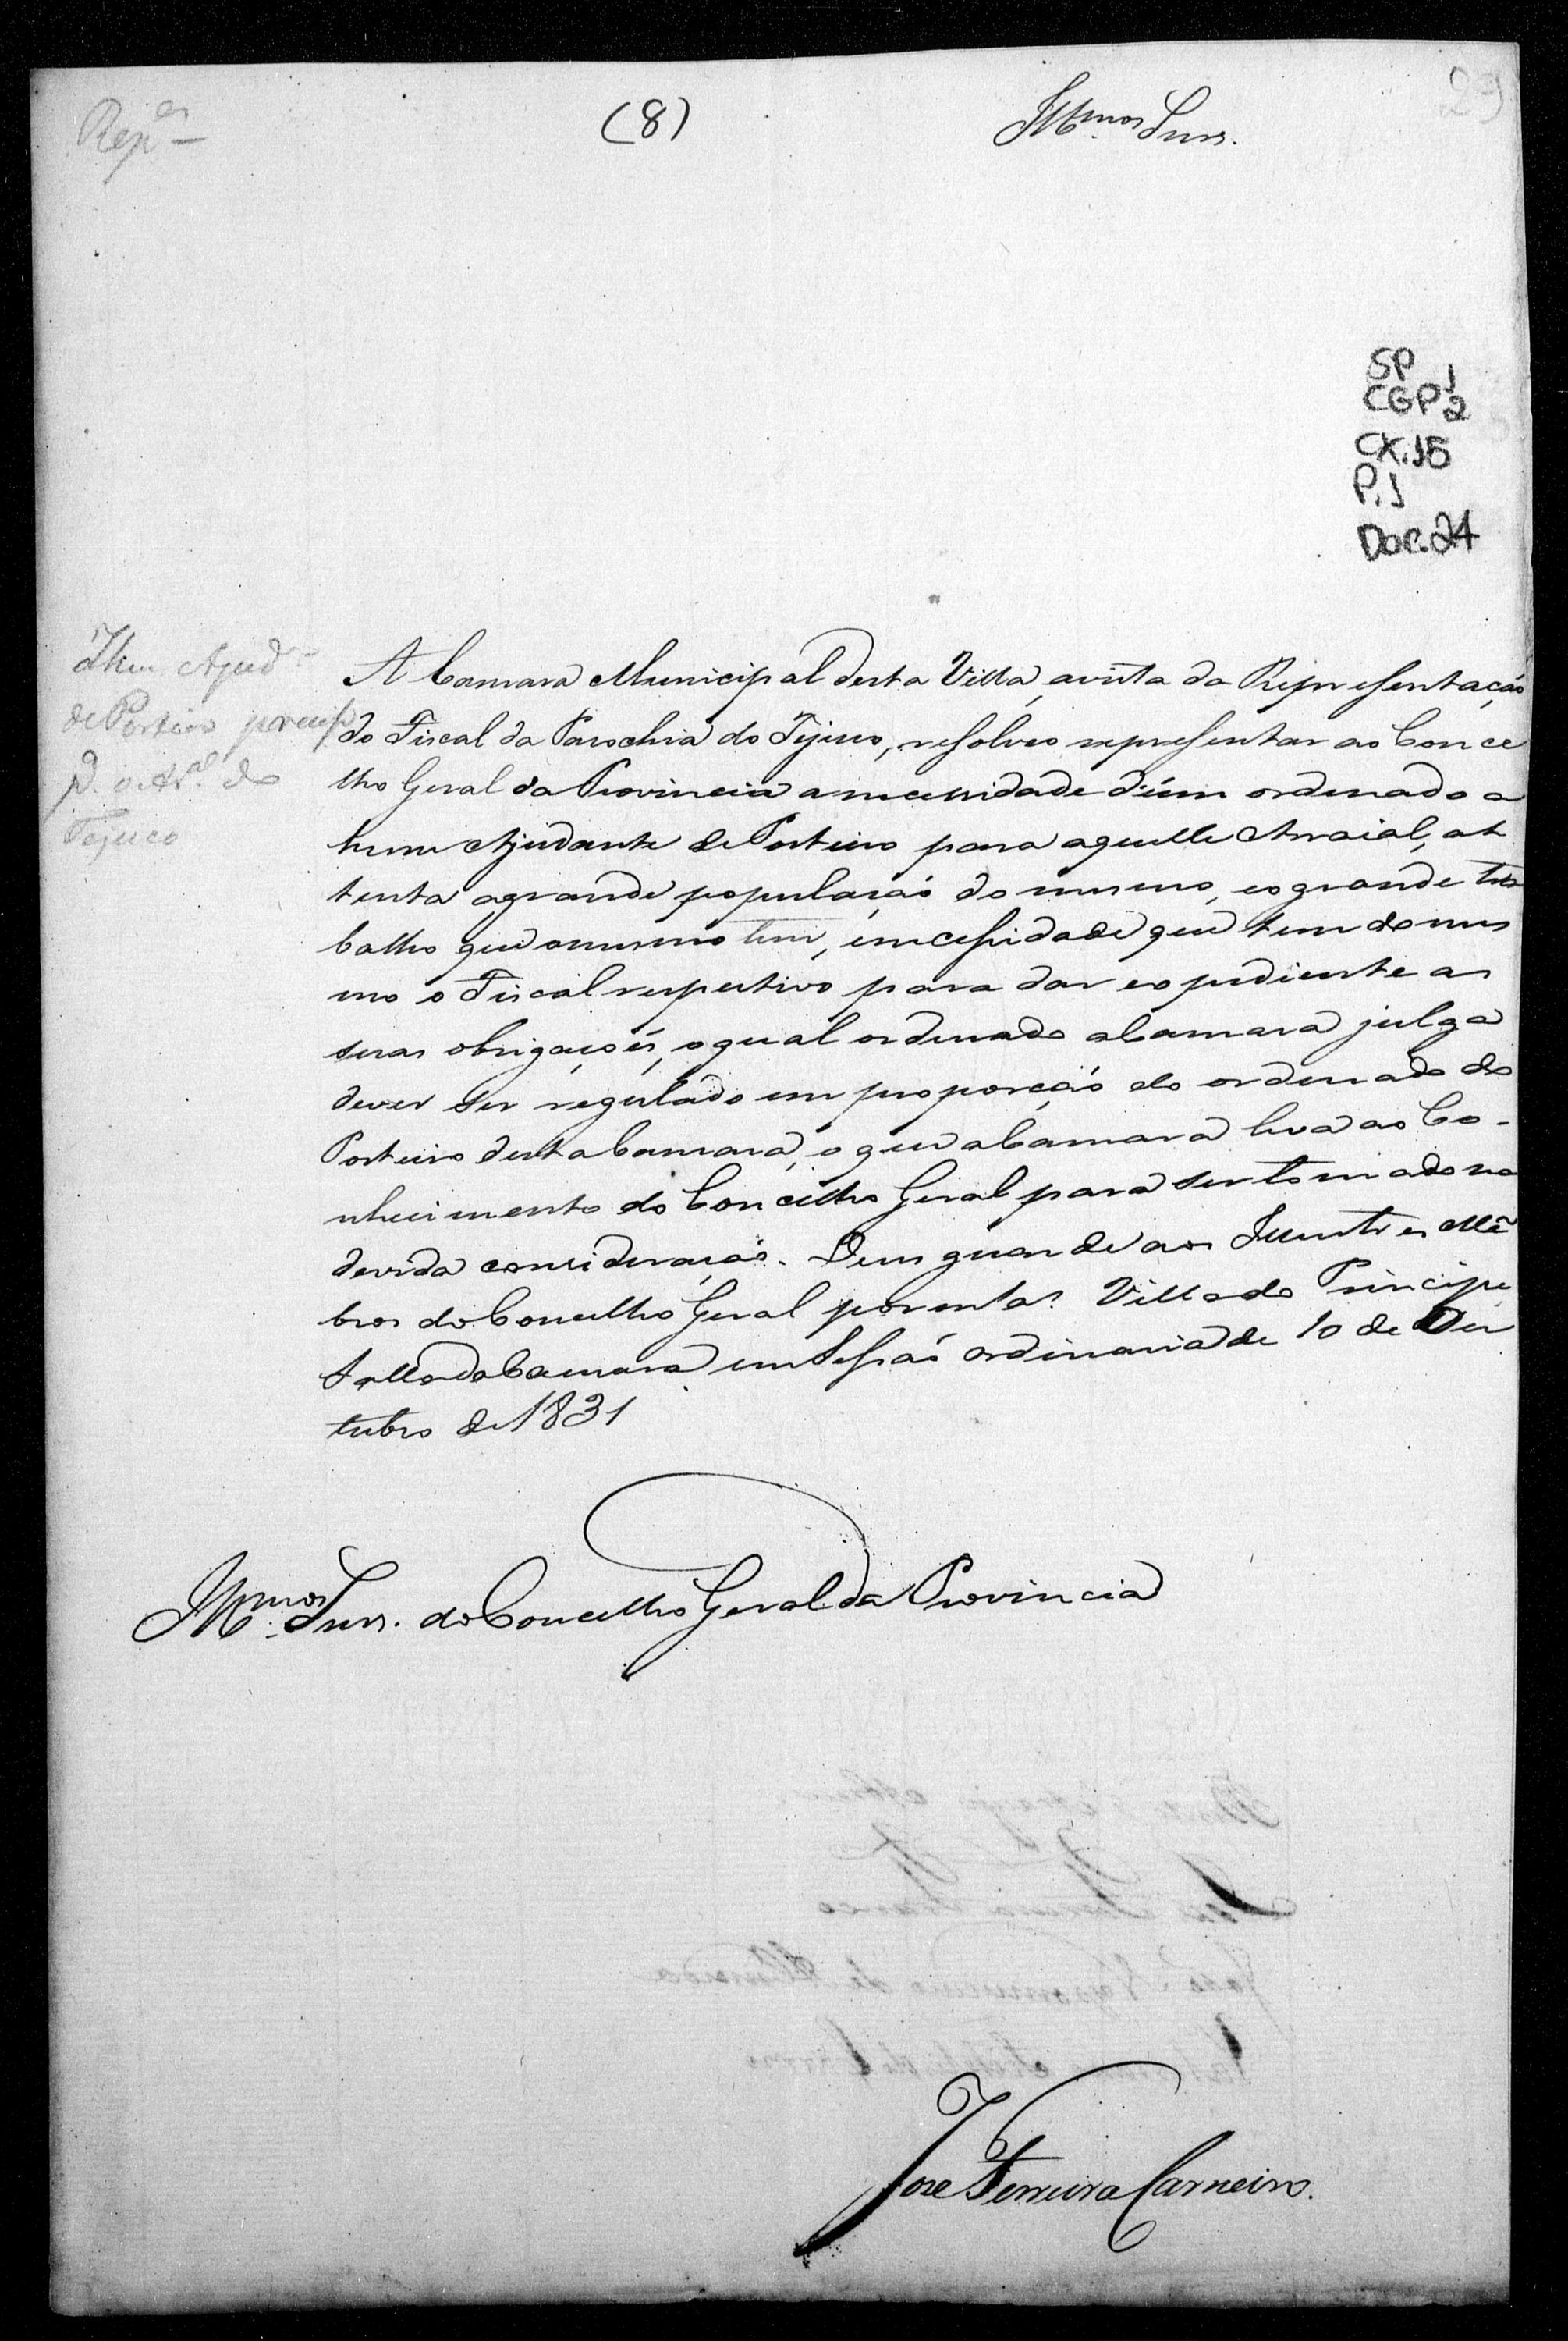 Rep.es
(8)
Illmos Snrs.
29
SP 1
CGP 2
CX.15
P.1
Doc.24
Hum Ajud.e
de Porteiro
p.a o Ar.al do
Tejuco
A Camara Municipal desta Villa, avista da Representação
do Fiscal da Parochia do Tejuco, resolveo representar ao Conce
lho Geral da Provincia a necessidade d'úm ordenado a
hum Ajudante de Porteiro para aquelle Arraial, at
tenta agrande população do mesmo, eogrande tra
balho que omesmo tem, enecessidade que tem do mes
mo o Fiscal respectivo para dar expediente as
suas obrigações, oqual ordenado aCamara julga
dever ser regulado em proporção do ordenado do
Porteiro destaCamara, o que aCamara leva ao Co-
nhecimento do Concelho Geral para ser tomado na
devida consideração. Deus guarde aos Illustres Mẽ
bros doConcelho Geral Villa do Principe
SalladaCamara emSessaõ ordinaria de 10 de Ou
tubro de 1831
Illmos Snrs. doConcelho Geral da Provincia
Jose Ferreira Carneiro.